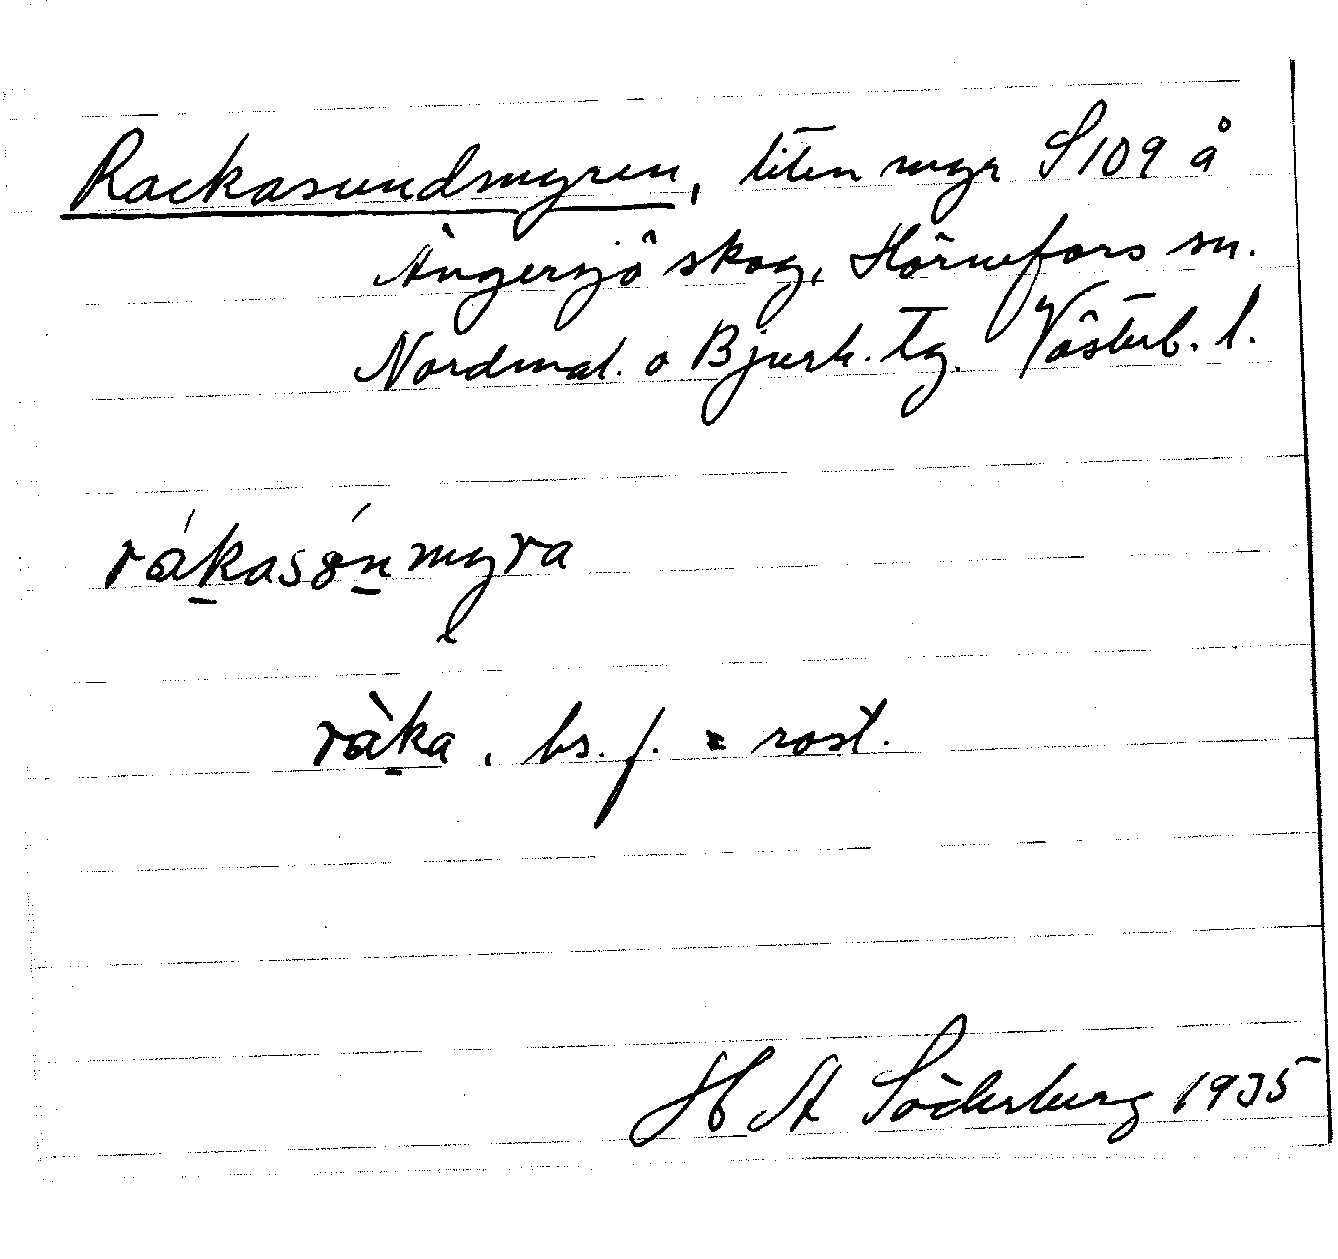 Rackasundmyren, liten myr S 109 å
Ängersjö skog, Hörnefors sn.
Nordmal. o Bjurh. tg. Västerb. l.
rákasónmyra
ràka. bs. f. = rost.
H A Söderberg 1935